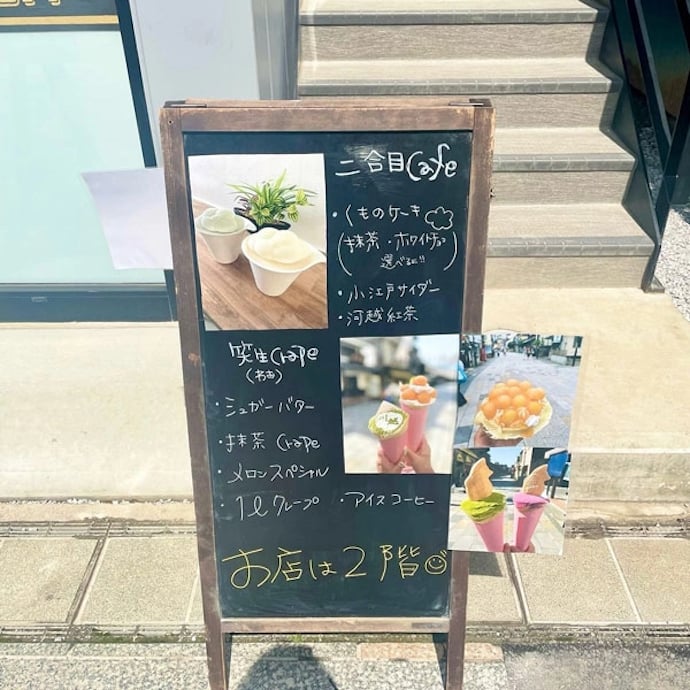 二合目Cafe
・くものケーキ
(抹茶・ホワイトチョコ
選べる!!)
・小江戸サイダー
・河越紅茶
笑生Crape
(わお)
・シュガーバター
・抹茶 Crape
・メロンスペシャル
・1ℓクレープ ・アイスコーヒー
お店は2階